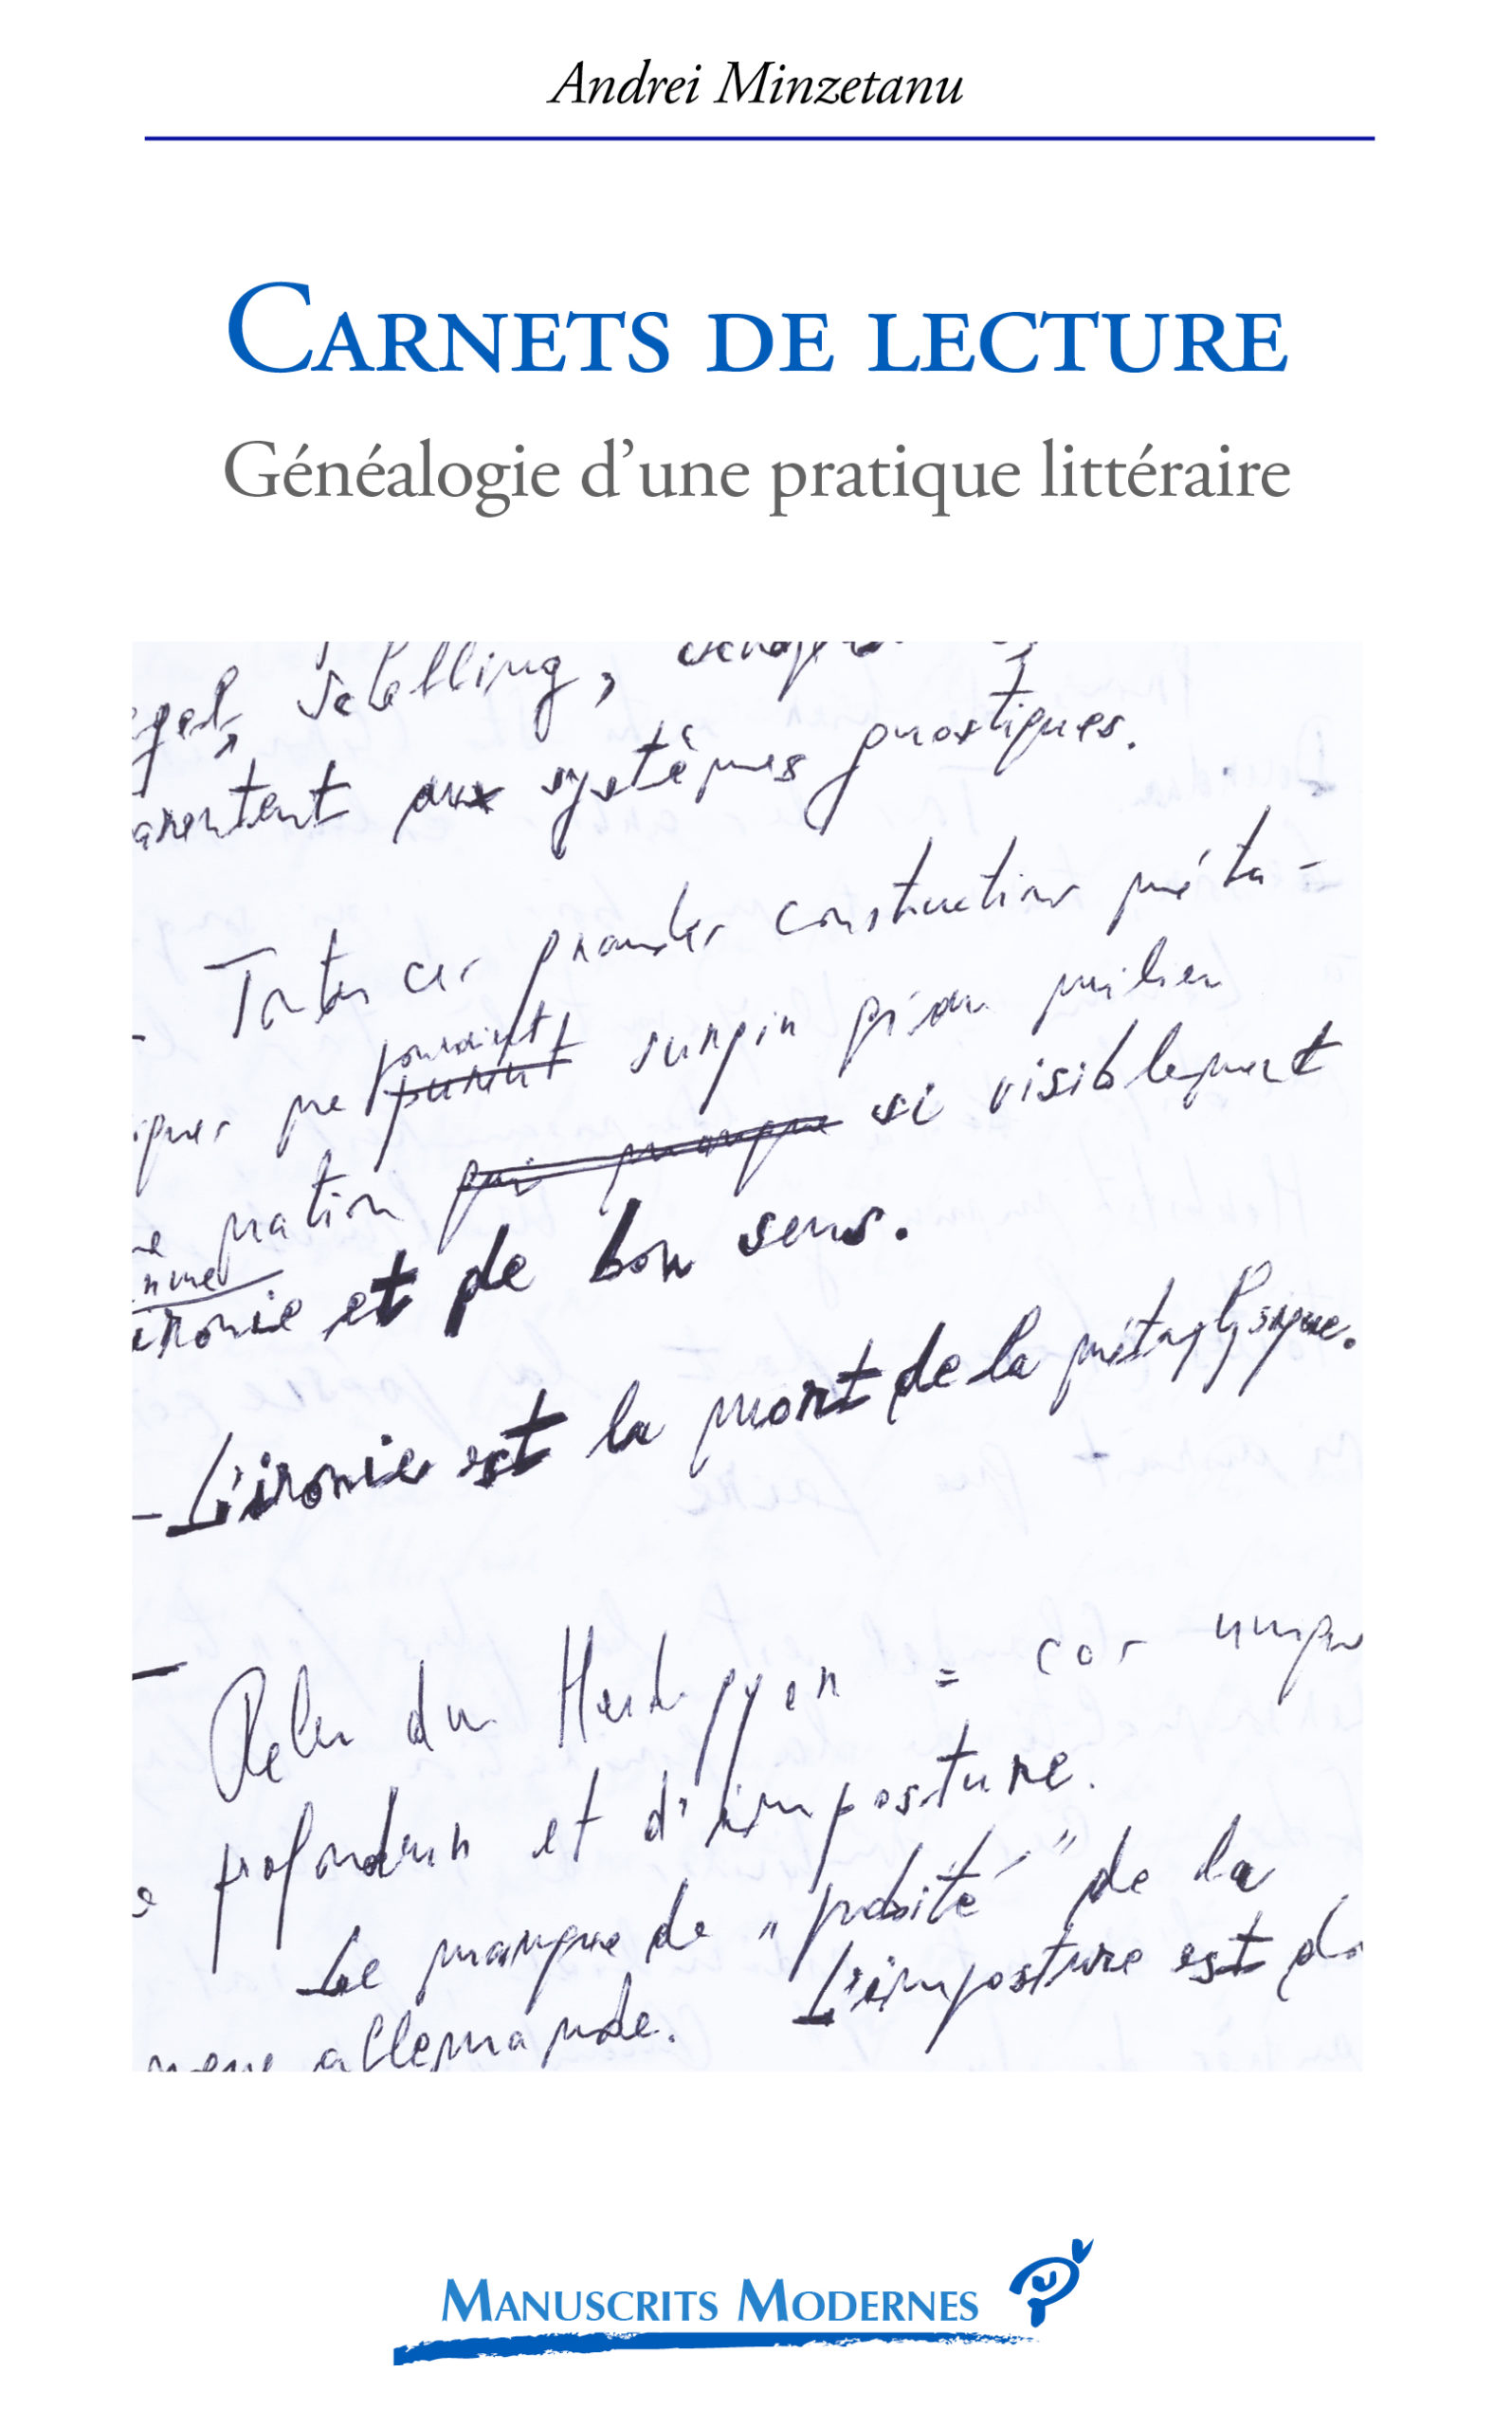 Andrei Minzetanu
CARNETS DE LECTURE
Généalogie d'une pratique littéraire
Schelling,
aux systèmes gnostiques.
Toutes ces grandes constructions méta-
pouvaient
surgir qu'au milieu
nation qui manque si visiblement
ironie et de bon sens.
- L'ironie est la mort de la métaphysique.
- Relu du Heidegger =
profondeur et d'imposture.
Le manque de "probité" de la
allemande. L'imposture est
MANUSCRITS MODERNES